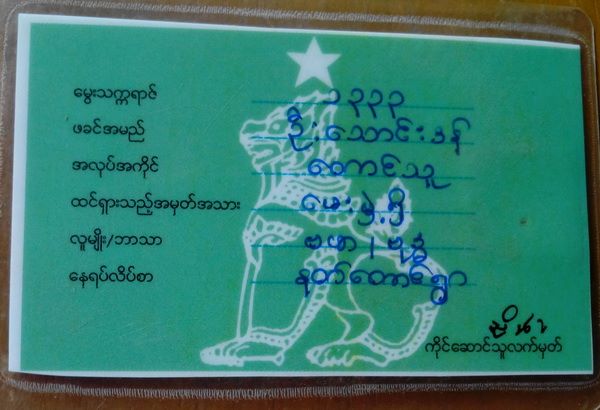 မွေးသက္ကရာဇ် ၁၃၃၃
ဖခင်အမည် ဦးသောင်းဒန်
အလုပ်အကိုင် တောင်သူ
ထင်ရှားသည့်အမှတ်အသား မေးမှဲ့ရှိ
လူမျိုး/ဘာသာ ဗမာ/ဗုဒ္ဓ
နေရပ်လိပ်စာ နတ်တောင်ရွာ
ကိုင်ဆောင်သူလက်မှတ်